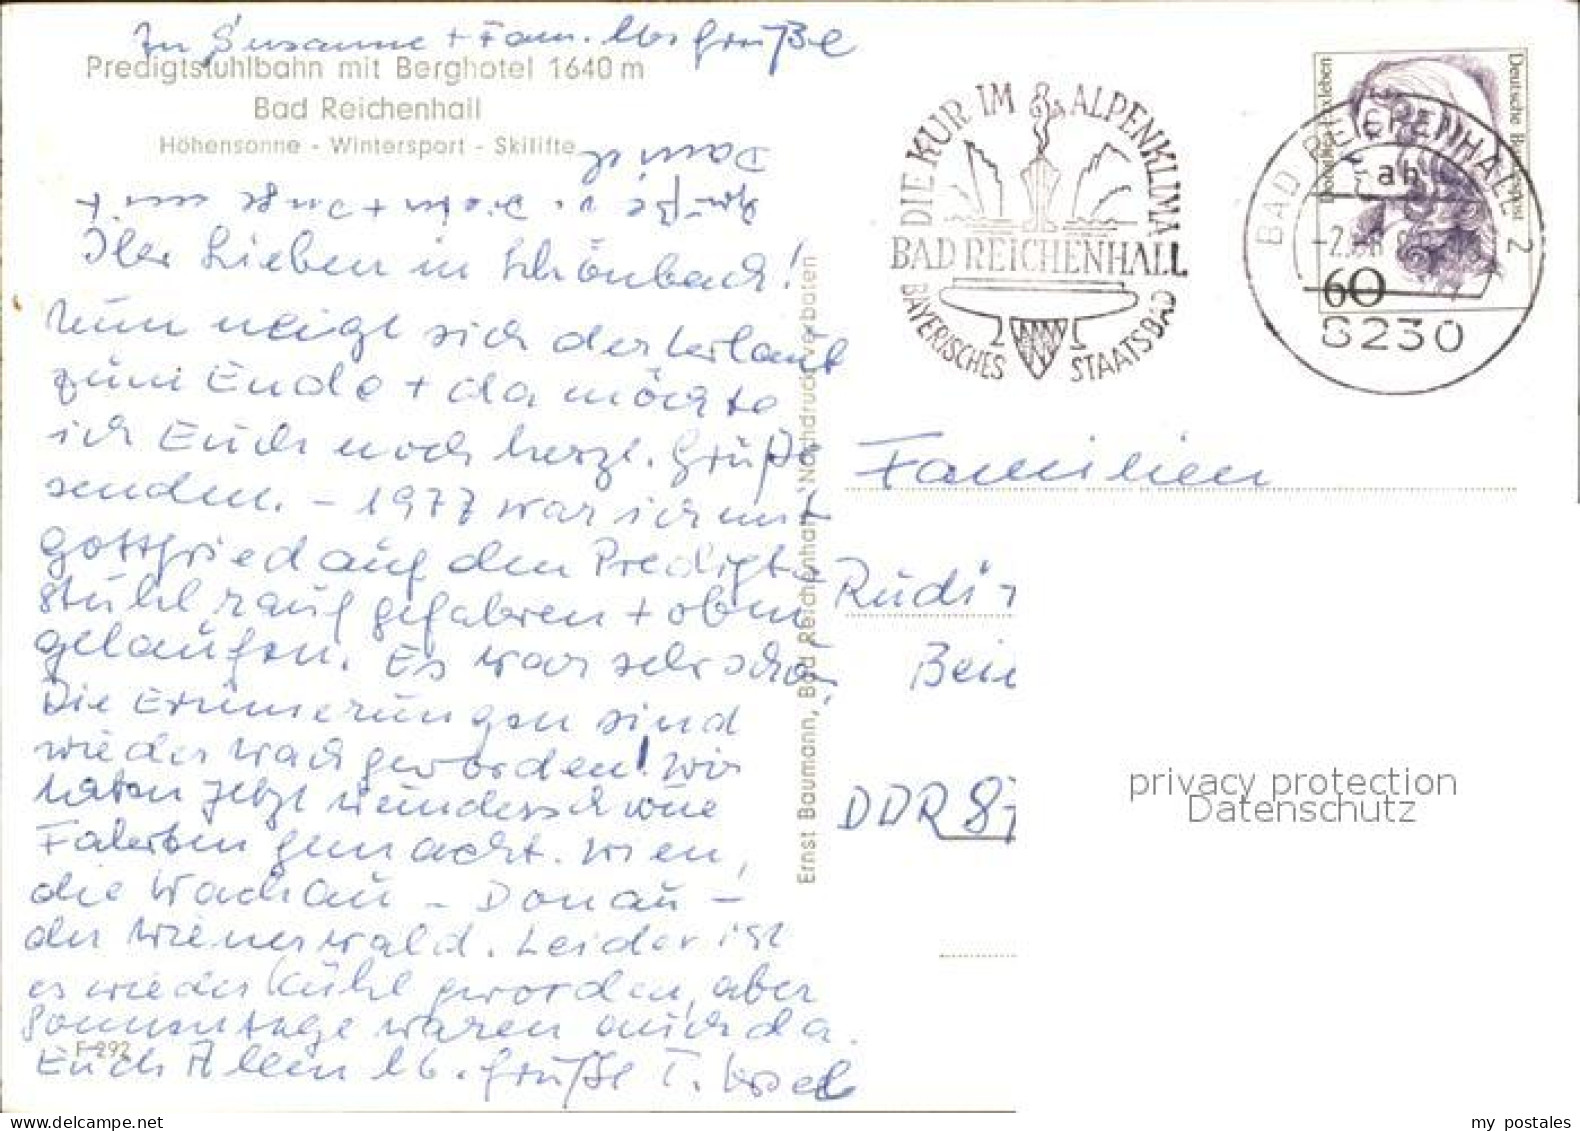 An Susanne + Fam. lbs Grüße
Predigtstuhlbahn mit Berghotel 1640 m
Bad Reichenhall
Höhensonne - Wintersport - Skilifte
Ihr Lieben in Schönbach!
Nun neigt sich der Urlaub
zum Ende + da möchte
ich Euch noch herzl. Grüße
senden. – 1977 war ich mit
Gottfried auf den Predigt-
stuhl rauf gefahren + oben
gelaufen. Es war sehr schön.
Die Erinnerungen sind
wieder wach geworden! Wir
haben jetzt wunderschöne
Fahrten gemacht. Wien,
die Wachau – Donau –
der Wienerwald. Leider ist
es wieder kühl geworden, aber
Sonnentage waren auch da.
Euch Allen lb. Grüße T.
F 292
Ernst Baumann, Bad Reichenhall, Nachdruck verboten
DIE KUR IM ALPENKLIMA
BAD REICHENHALL
BAYERISCHES STAATSBAD
Deutsche Bundespost
60
BAD REICHENHALL 2
ah
8230
Familien
Rudi +
Bei
DDR 87
privacy protection
Datenschutz
my postales